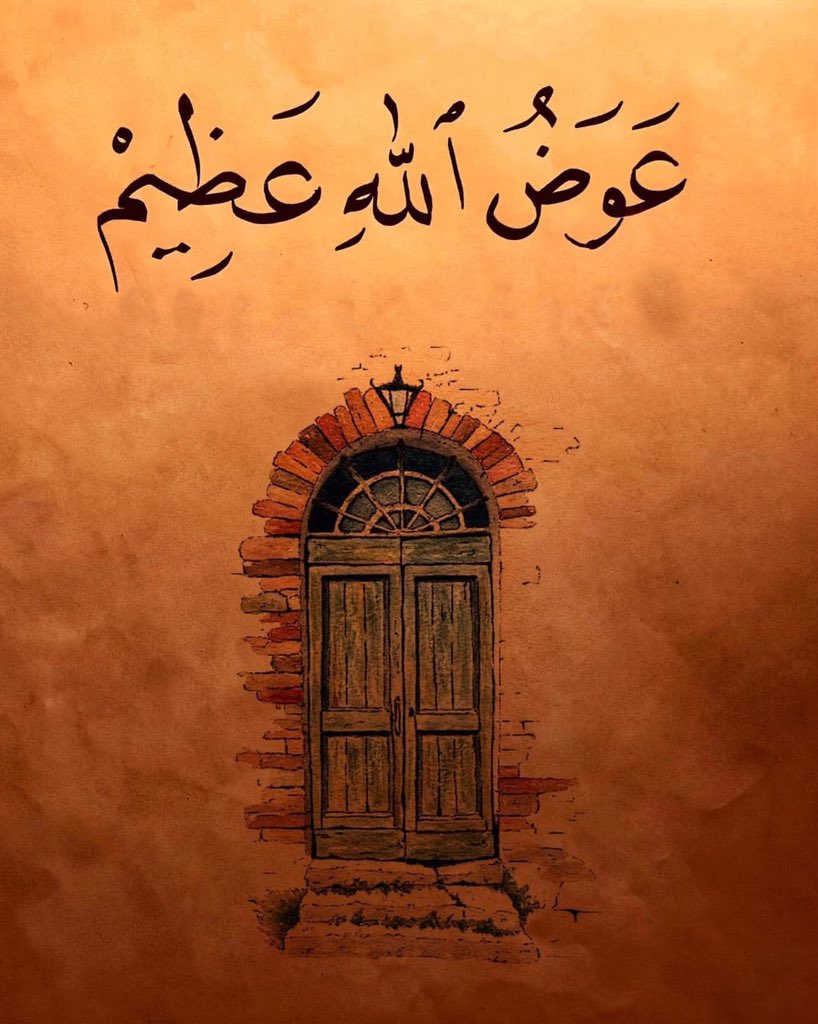 عَوَضُ ٱللَّهِ عَظِيمْ